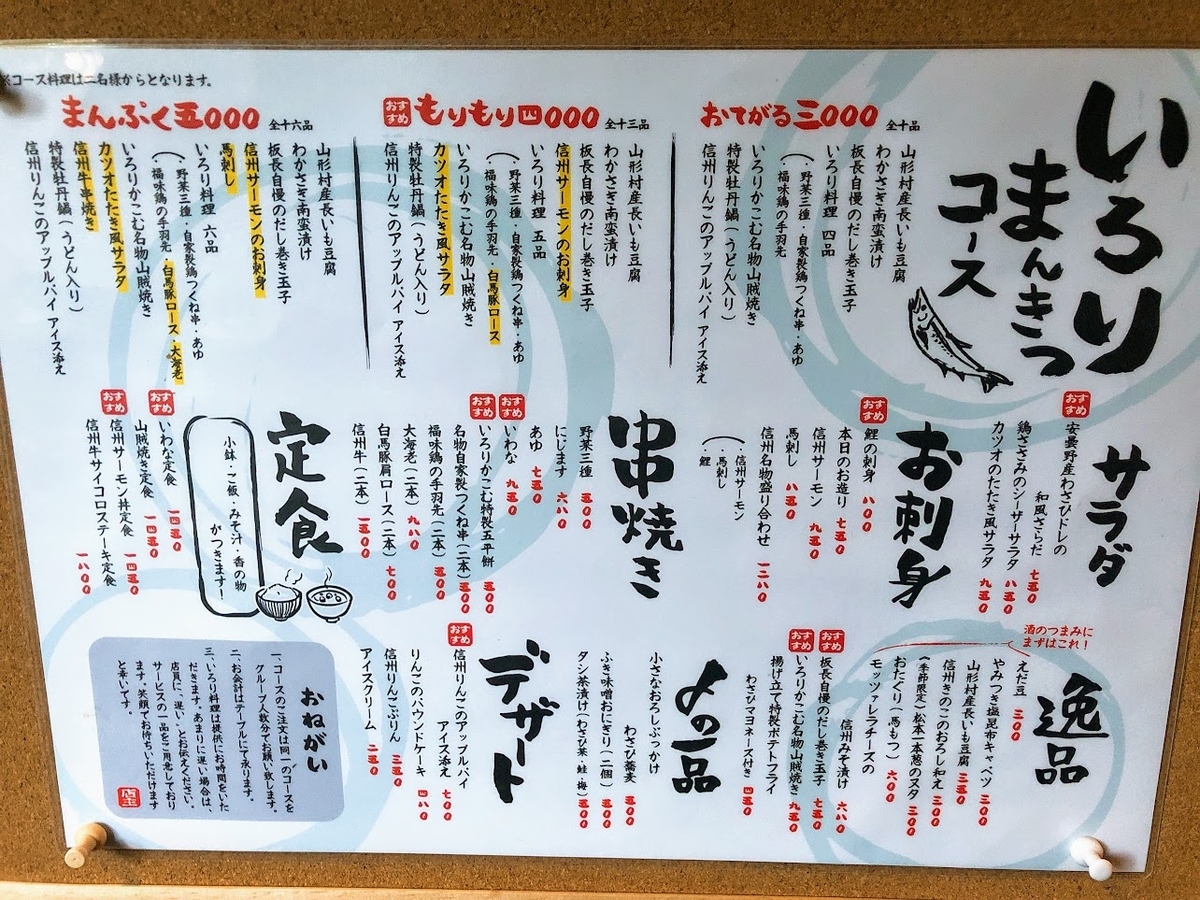 ※コース料理は二名様からとなります。
いろり
まんきつ
コース
おてがる三〇〇〇 全十品
山形村産長いも豆腐
わかさぎ南蛮漬け
板長自慢のだし巻き玉子
いろり料理 四品
（・野菜三種・自家製鶏つくね串・あゆ
・福味鶏の手羽先
いろりかこむ名物山賊焼き
特製牡丹鍋（うどん入り）
信州りんごのアップルパイ アイス添え
おすすめ もりもり四〇〇〇 全十三品
山形村産長いも豆腐
わかさぎ南蛮漬け
板長自慢のだし巻き玉子
信州サーモンのお刺身
いろり料理 五品
（・野菜三種・自家製鶏つくね串・あゆ
・福味鶏の手羽先・白馬豚ロース
いろりかこむ名物山賊焼き
カツオたたき風サラダ
特製牡丹鍋（うどん入り）
信州りんごのアップルパイ アイス添え
まんぷく五〇〇〇 全十六品
山形村産長いも豆腐
わかさぎ南蛮漬け
板長自慢のだし巻き玉子
信州サーモンのお刺身
馬刺し
いろり料理 六品
（・野菜三種・自家製鶏つくね串・あゆ
・福味鶏の手羽先・白馬豚ロース・大海老
いろりかこむ名物山賊焼き
カツオたたき風サラダ
信州牛串焼き
特製牡丹鍋（うどん入り）
信州りんごのアップルパイ アイス添え
サラダ
おすすめ
安曇野産わさびドレの
和風さらだ 七五〇
鶏ささみのシーザーサラダ 八五〇
カツオのたたき風サラダ 九五〇
お刺身
おすすめ
鯉の刺身 八〇〇
本日のお造り 七五〇
信州サーモン 九五〇
馬刺し 八五〇
信州名物盛り合わせ 一二八〇
（・信州サーモン
・馬刺し
・鯉
串焼き
野菜三種 五〇〇
にじます 六八〇
あゆ 七五〇
おすすめ いわな 九五〇
おすすめ いろりかこむ特製五平餅 五〇〇
名物自家製つくね串（二本） 五〇〇
福味鶏の手羽先（二本） 五〇〇
大海老（二本） 九八〇
白馬豚肩ロース（二本） 七〇〇
信州牛（二本） 一五〇〇
定食
小鉢・ご飯、みそ汁・香の物
がつきます！
おすすめ いわな定食 一四五〇
山賊焼き定食 一四五〇
おすすめ 信州サーモン丼定食 一四五〇
信州牛サイコロステーキ定食 一八〇〇
逸品
酒のつまみに
まずはこれ！
えだ豆 三〇〇
やみつき塩昆布キャベツ 三〇〇
山形村産長いも豆腐 三五〇
信州きのこのおろし和え 三〇〇
（季節限定）松本一本葱のヌタ 三〇〇
おたぐり（馬もつ） 六〇〇
モッツァレラチーズの
信州みそ漬け 六八〇
おすすめ 板長自慢のだし巻き玉子 七五〇
おすすめ いろりかこむ名物山賊焼き 九五〇
揚げ立て特製ポテトフライ
わさびマヨネーズ付き 四五〇
〆の一品
小さなおろしぶっかけ
わさび蕎麦 五〇〇
ふき味噌おにぎり（二個） 五〇〇
タン茶漬け（わさび菜・鮭・梅） 五〇〇
デザート
おすすめ
信州りんごのアップルパイ
アイス添え 七〇〇
りんごのパウンドケーキ 四八〇
信州りんごぷりん 三五〇
アイスクリーム 二五〇
おねがい
一、コースのご注文は同一のコースを
グループ人数分でお願い致します。
二、お会計はテーブルにて承ります。
三、いろり料理は提供にお時間をいた
だきます。あまりに遅い場合は、
店員に、遅い、とお伝えください。
サービスの一品をご用意しており
ます。笑顔でお待ちいただけます
と幸いです。
店主